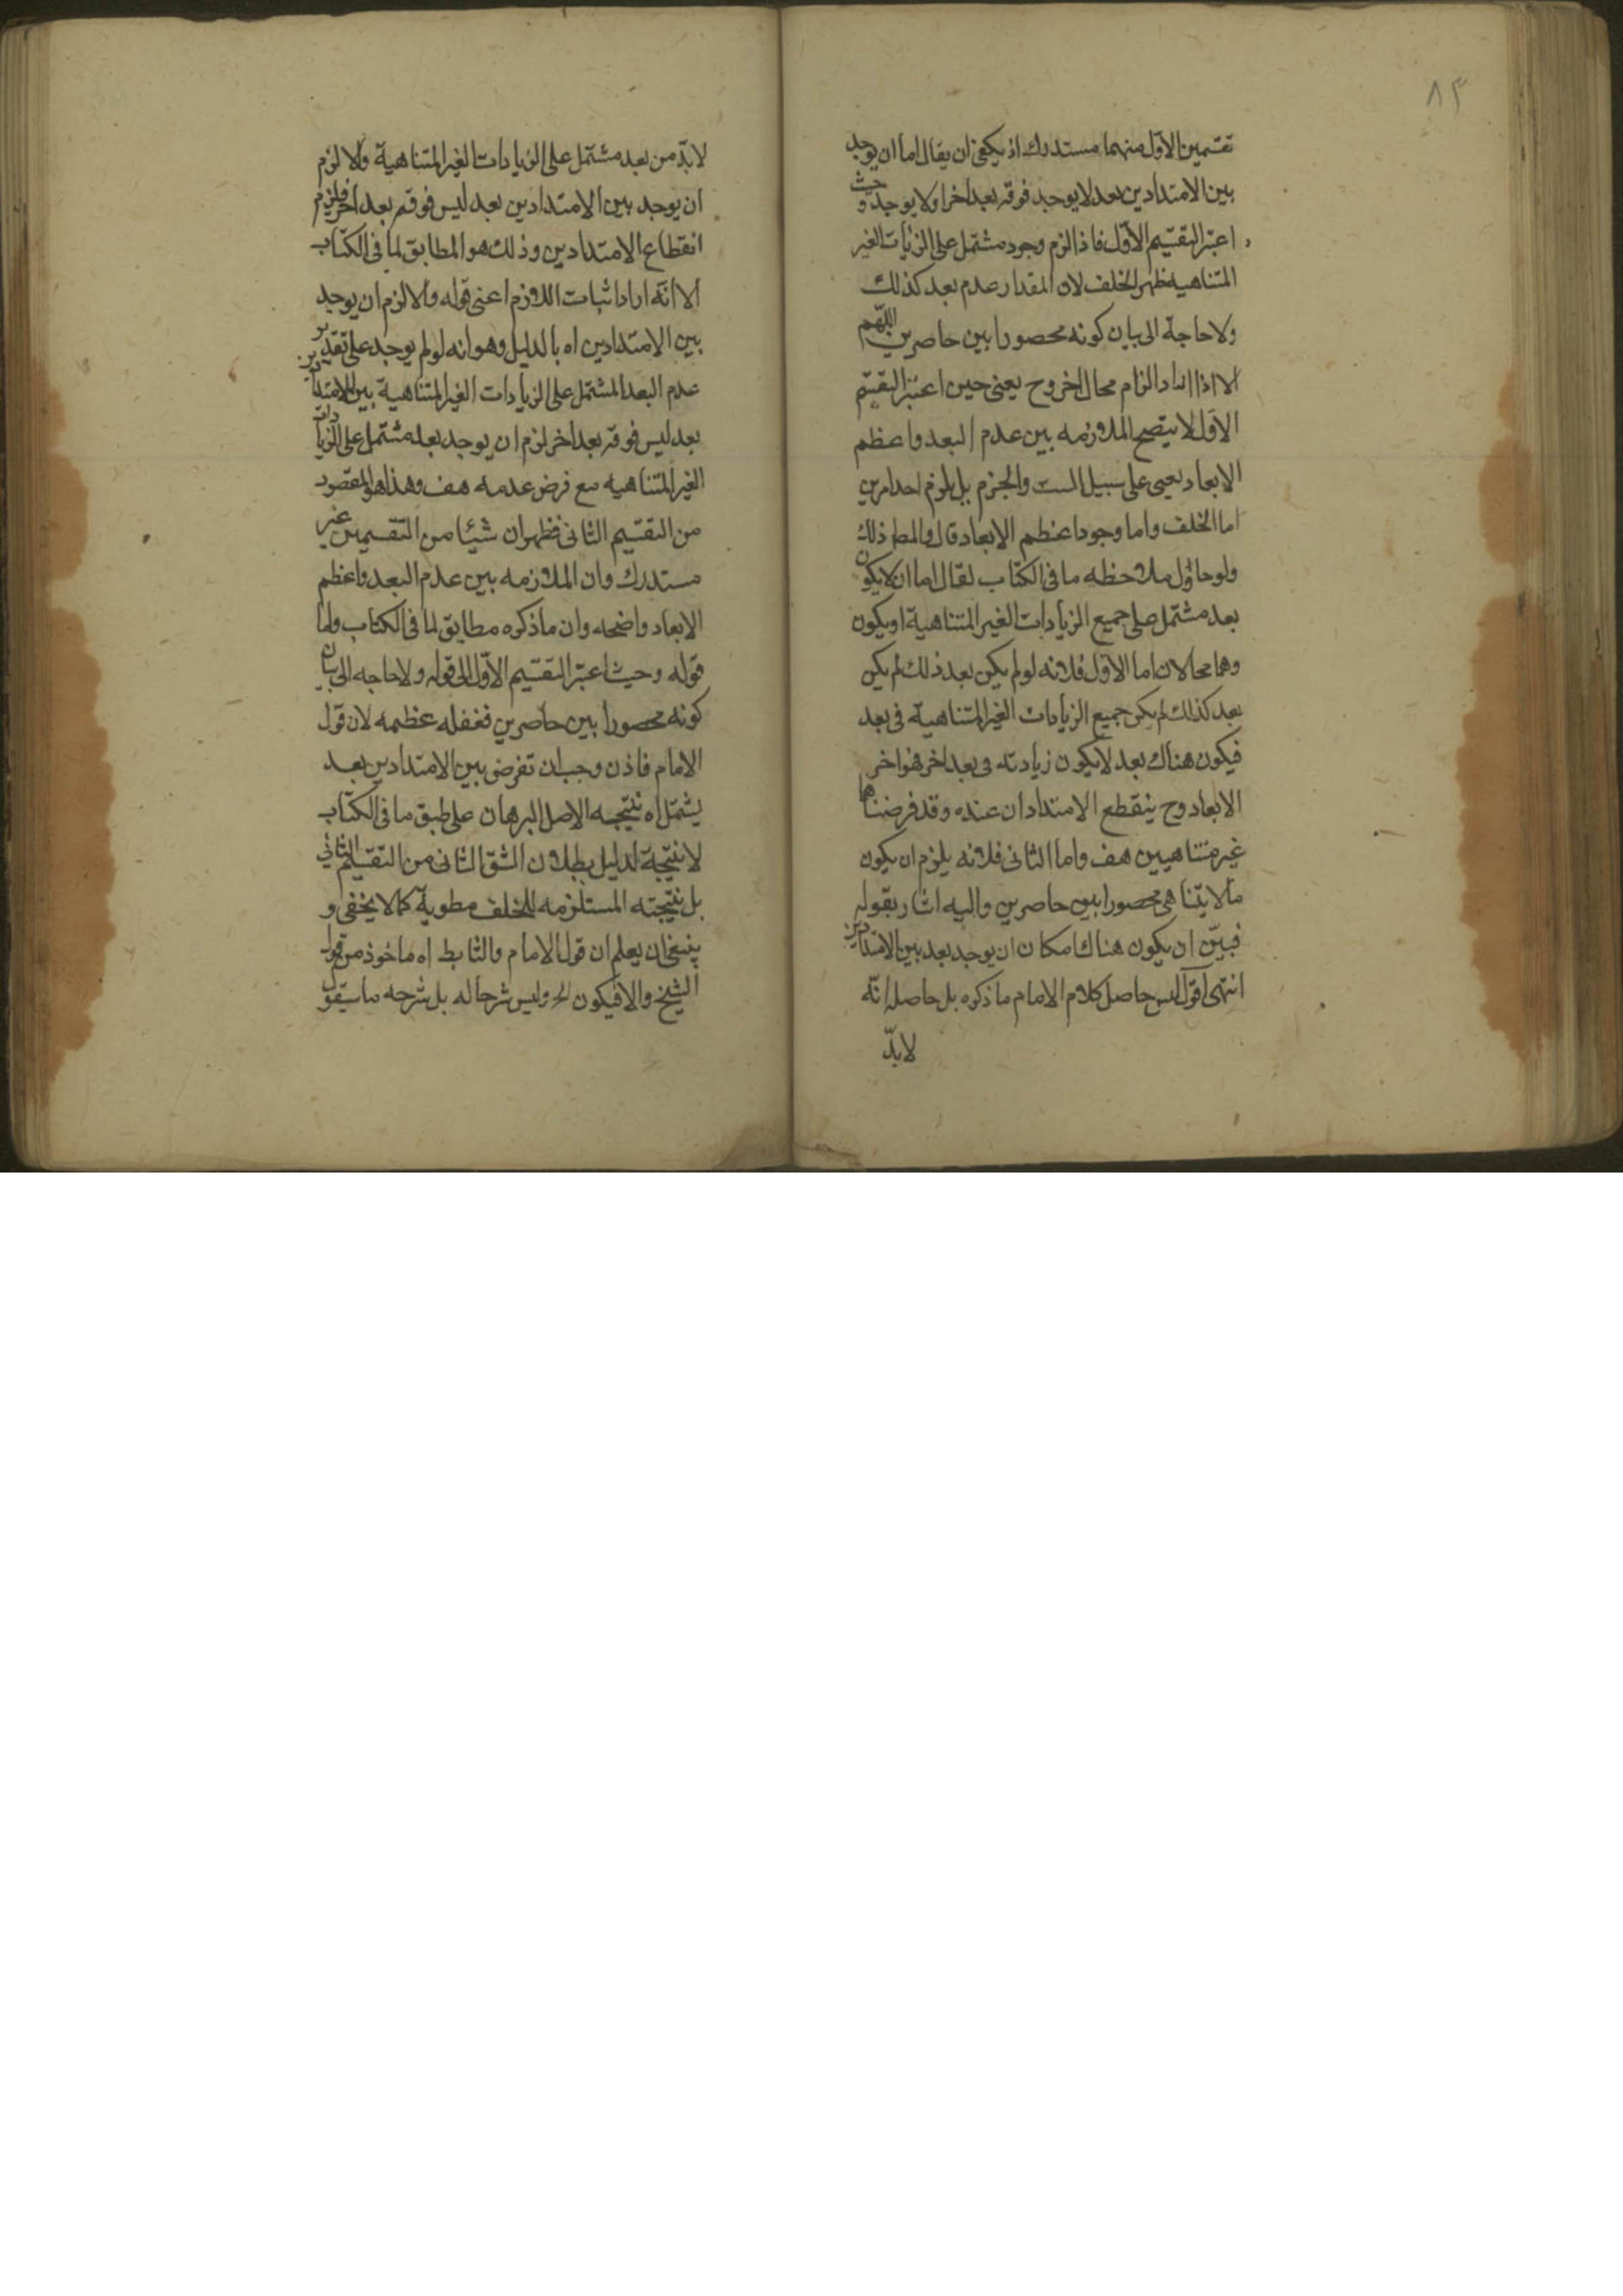 ٨٣
تقسمين الاوّل منهما مستدرك اذ يكفى ان يقال اما ان يوجد
بين الامتدادين بعد لا يوجد فوقه بعد اخر او لا يوجد وحيث
اعتبر التقسيم الاوّل فاذا لزم وجود مشتمل على الزيادات الغير
المتناهية ظهر الخلف لان المقدار عدم بعد كذلك
ولا حاجة الى بيان كونه محصورا بين حاصرين اللهّم
الا اذا اراد الزام محال اخر وح يعنى حين اعتبر التقسيم
الاوّل لا يتضح الملازمه بين عدم البعد واعظم
الابعاد يعنى على سبيل البت والجزم بل يلزم احد امرين
اما الخلف واما وجود اعظم الابعاد قال والمط ذلك
ولو حاول ملاحظه ما فى الكتاب لقال اما ان لا يكون
بعد مشتمل على جميع الزيادات الغير المتناهية او يكون
وهما محالان اما الاوّل فلانه لو لم يكن بعد ذلك لم يكن
بعد كذلك لم يكن جميع الزيادات الغير المتناهية فى بعد
فيكون هناك بعد لا يكون زيادته فى بعد اخر هو اخر
الابعاد وح ينقطع الامتدادان عنده وقد فرضناهما
غير متناهيين هف واما الثانى فلانه يلزم ان يكون
ما لا يتناهى محصورا بين حاصرين واليه اشار بقوله
فبيّن ان يكون هناك امكان ان يوجد بعد بين الامتدادين
انتهى اقول ليس حاصل كلام الامام ما ذكره بل حاصله انّه
لابدّ
لابدّ من بعد مشتمل على الزيادات الغير المتناهية والا لزم
ان يوجد بين الامتدادين بعد ليس فوقه بعد اخر فلزم
انقطاع الامتدادين وذلك هو المطابق لما فى الكتاب
الا انّه اراد اثبات اللازم اعنى قوله والا لزم ان يوجد
بين الامتدادين اه بالدليل وهو انه لو لم يوجد على تقدير
عدم البعد المشتمل على الزيادات الغير المتناهية بين الامتدادين
بعد ليس فوقه بعد اخر لزم ان يوجد بعد مشتمل على الزيادات
الغير المتناهيه مع فرض عدمه هف وهذا هو المقصود
من التقسيم الثانى فظهر ان شيئا من التقسيمين غير
مستدرك وان الملازمه بين عدم البعد واعظم
الابعاد واضحه وان ما ذكره مطابق لما فى الكتاب واما
قوله وحيث اعتبر التقسيم الاوّل الى قوله ولا حاجه الى بيان
كونه محصورا بين حاصرين فغفله عظيمه لان قول
الامام فاذن وجب ان تفرض بين الامتدادين بعد
يشتمل اه نتيجه الاصل البرهان على طبق ما فى الكتاب
لا نتيجة لدليل بطلان الشق الثانى من التقسيم الثانى
بل نتيجته المستلزمه للخلف مطوية كما لا يخفى و
ينبغى ان يعلم ان قول الامام والثا بط اه ماخوذ من قول
الشيخ والا فيكون الخ وليس شرحا له بل شرحه ما سيقول